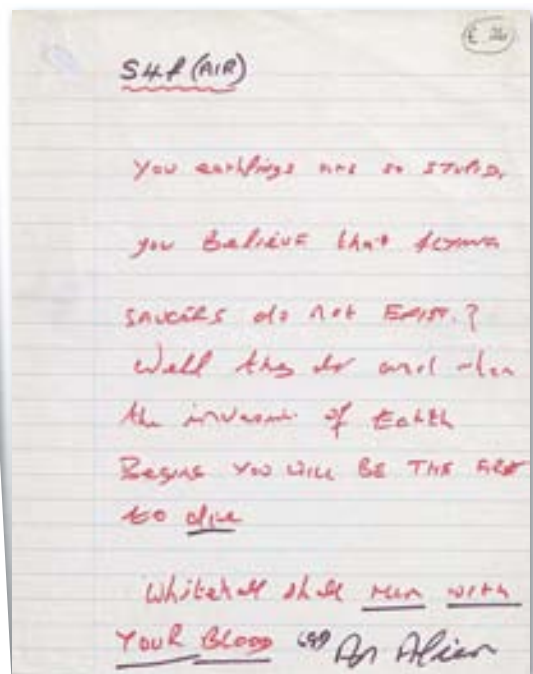 E 26
S4F (AIR)
You earthlings are so STUPID.
you Believe that flying
saucers do not Exist.?
Well they do and when
the invasion of Earth
Begins You WILL BE THE FIRST
to die
Whitehall shall run with
YOUR Blood An Alien